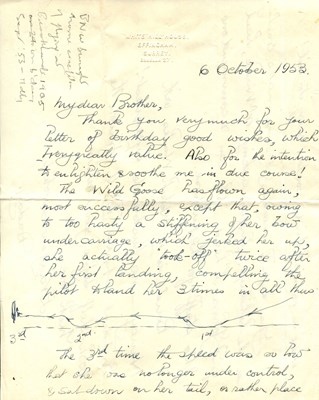 WHITE HILL HOUSE,
EFFINGHAM,
SURREY.
6 October 1953.
My dear Brother,
Thank you very much for your
letter of birthday good wishes, which
I very greatly value. Also for the intention
to enlighten & soothe me in due course!
The Wild Goose has flown again,
most successfully, except that, owing
to too hasty a stiffening of her bow
undercarriage, which jerked her up,
she actually "took-off" twice after
her first landing, compelling the
pilot to land her 3 times in all thus
3rd 2nd 1st
The 3rd time the speed was so low
that she was no longer under control,
& sat down on her tail, or rather place